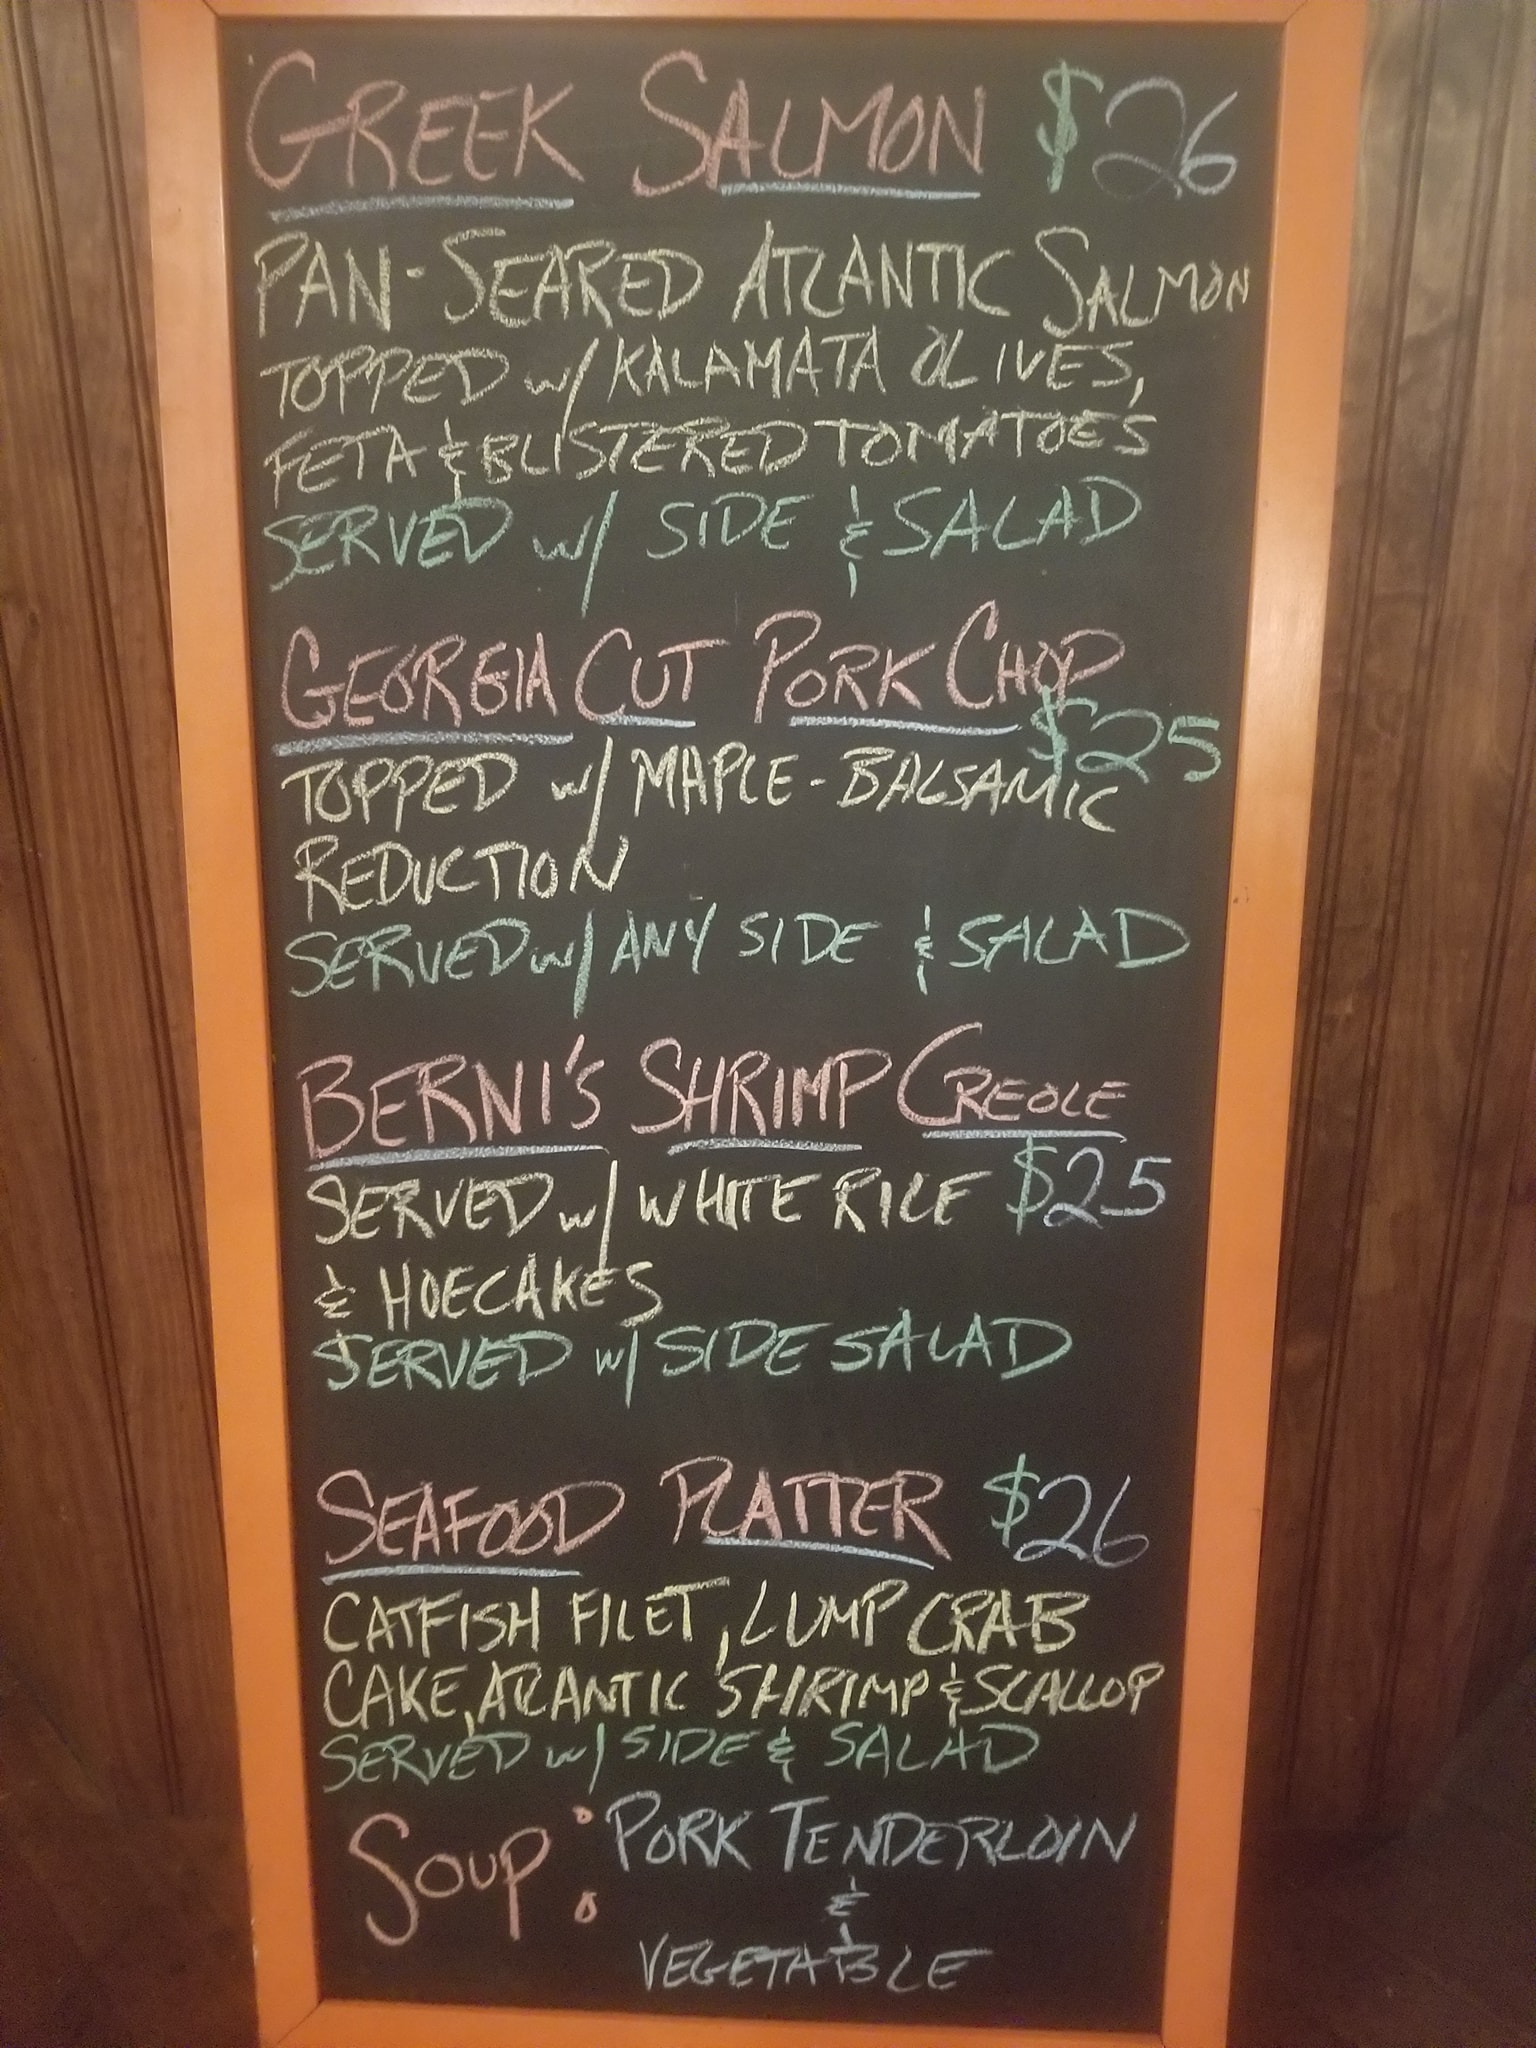 GREEK SALMON $26
PAN-SEARED ATLANTIC SALMON
TOPPED w/ KALAMATA OLIVES,
FETA & BLISTERED TOMATOES
SERVED w/ SIDE & SALAD
GEORGIA CUT PORK CHOP
$25
TOPPED w/ MAPLE-BALSAMIC
REDUCTION
SERVED w/ ANY SIDE & SALAD
BERNI'S SHRIMP CREOLE
SERVED w/ WHITE RICE $25
& HOECAKES
SERVED w/ SIDE SALAD
SEAFOOD PLATTER $26
CATFISH FILET, LUMP CRAB
CAKE, ATLANTIC SHRIMP & SCALLOP
SERVED w/ SIDE & SALAD
SOUP: PORK TENDERLOIN
&
VEGETABLE